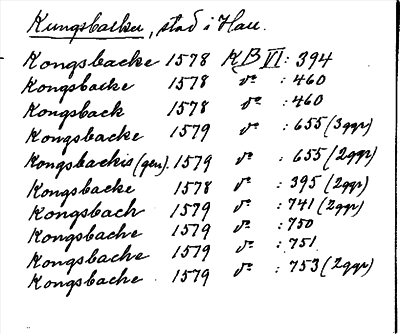 Kungsbacka, stad i Hall.
Kongsbacke 1578 KB VI : 394
Kongsbacke 1578 do : 460
Kongsback 1578 do : 460
Kongsbacke 1579 do : 655 (3 ggr)
Kongsbackis (gen). 1579 do : 655 (2 ggr)
Kongsbacke 1578 do : 395 (2 ggr)
Kongsbach 1579 do : 741 (2 ggr)
Kongsbache 1579 do : 750
Kongsbache 1579 do : 751
Kongsbache 1579 do : 753 (2 ggr)